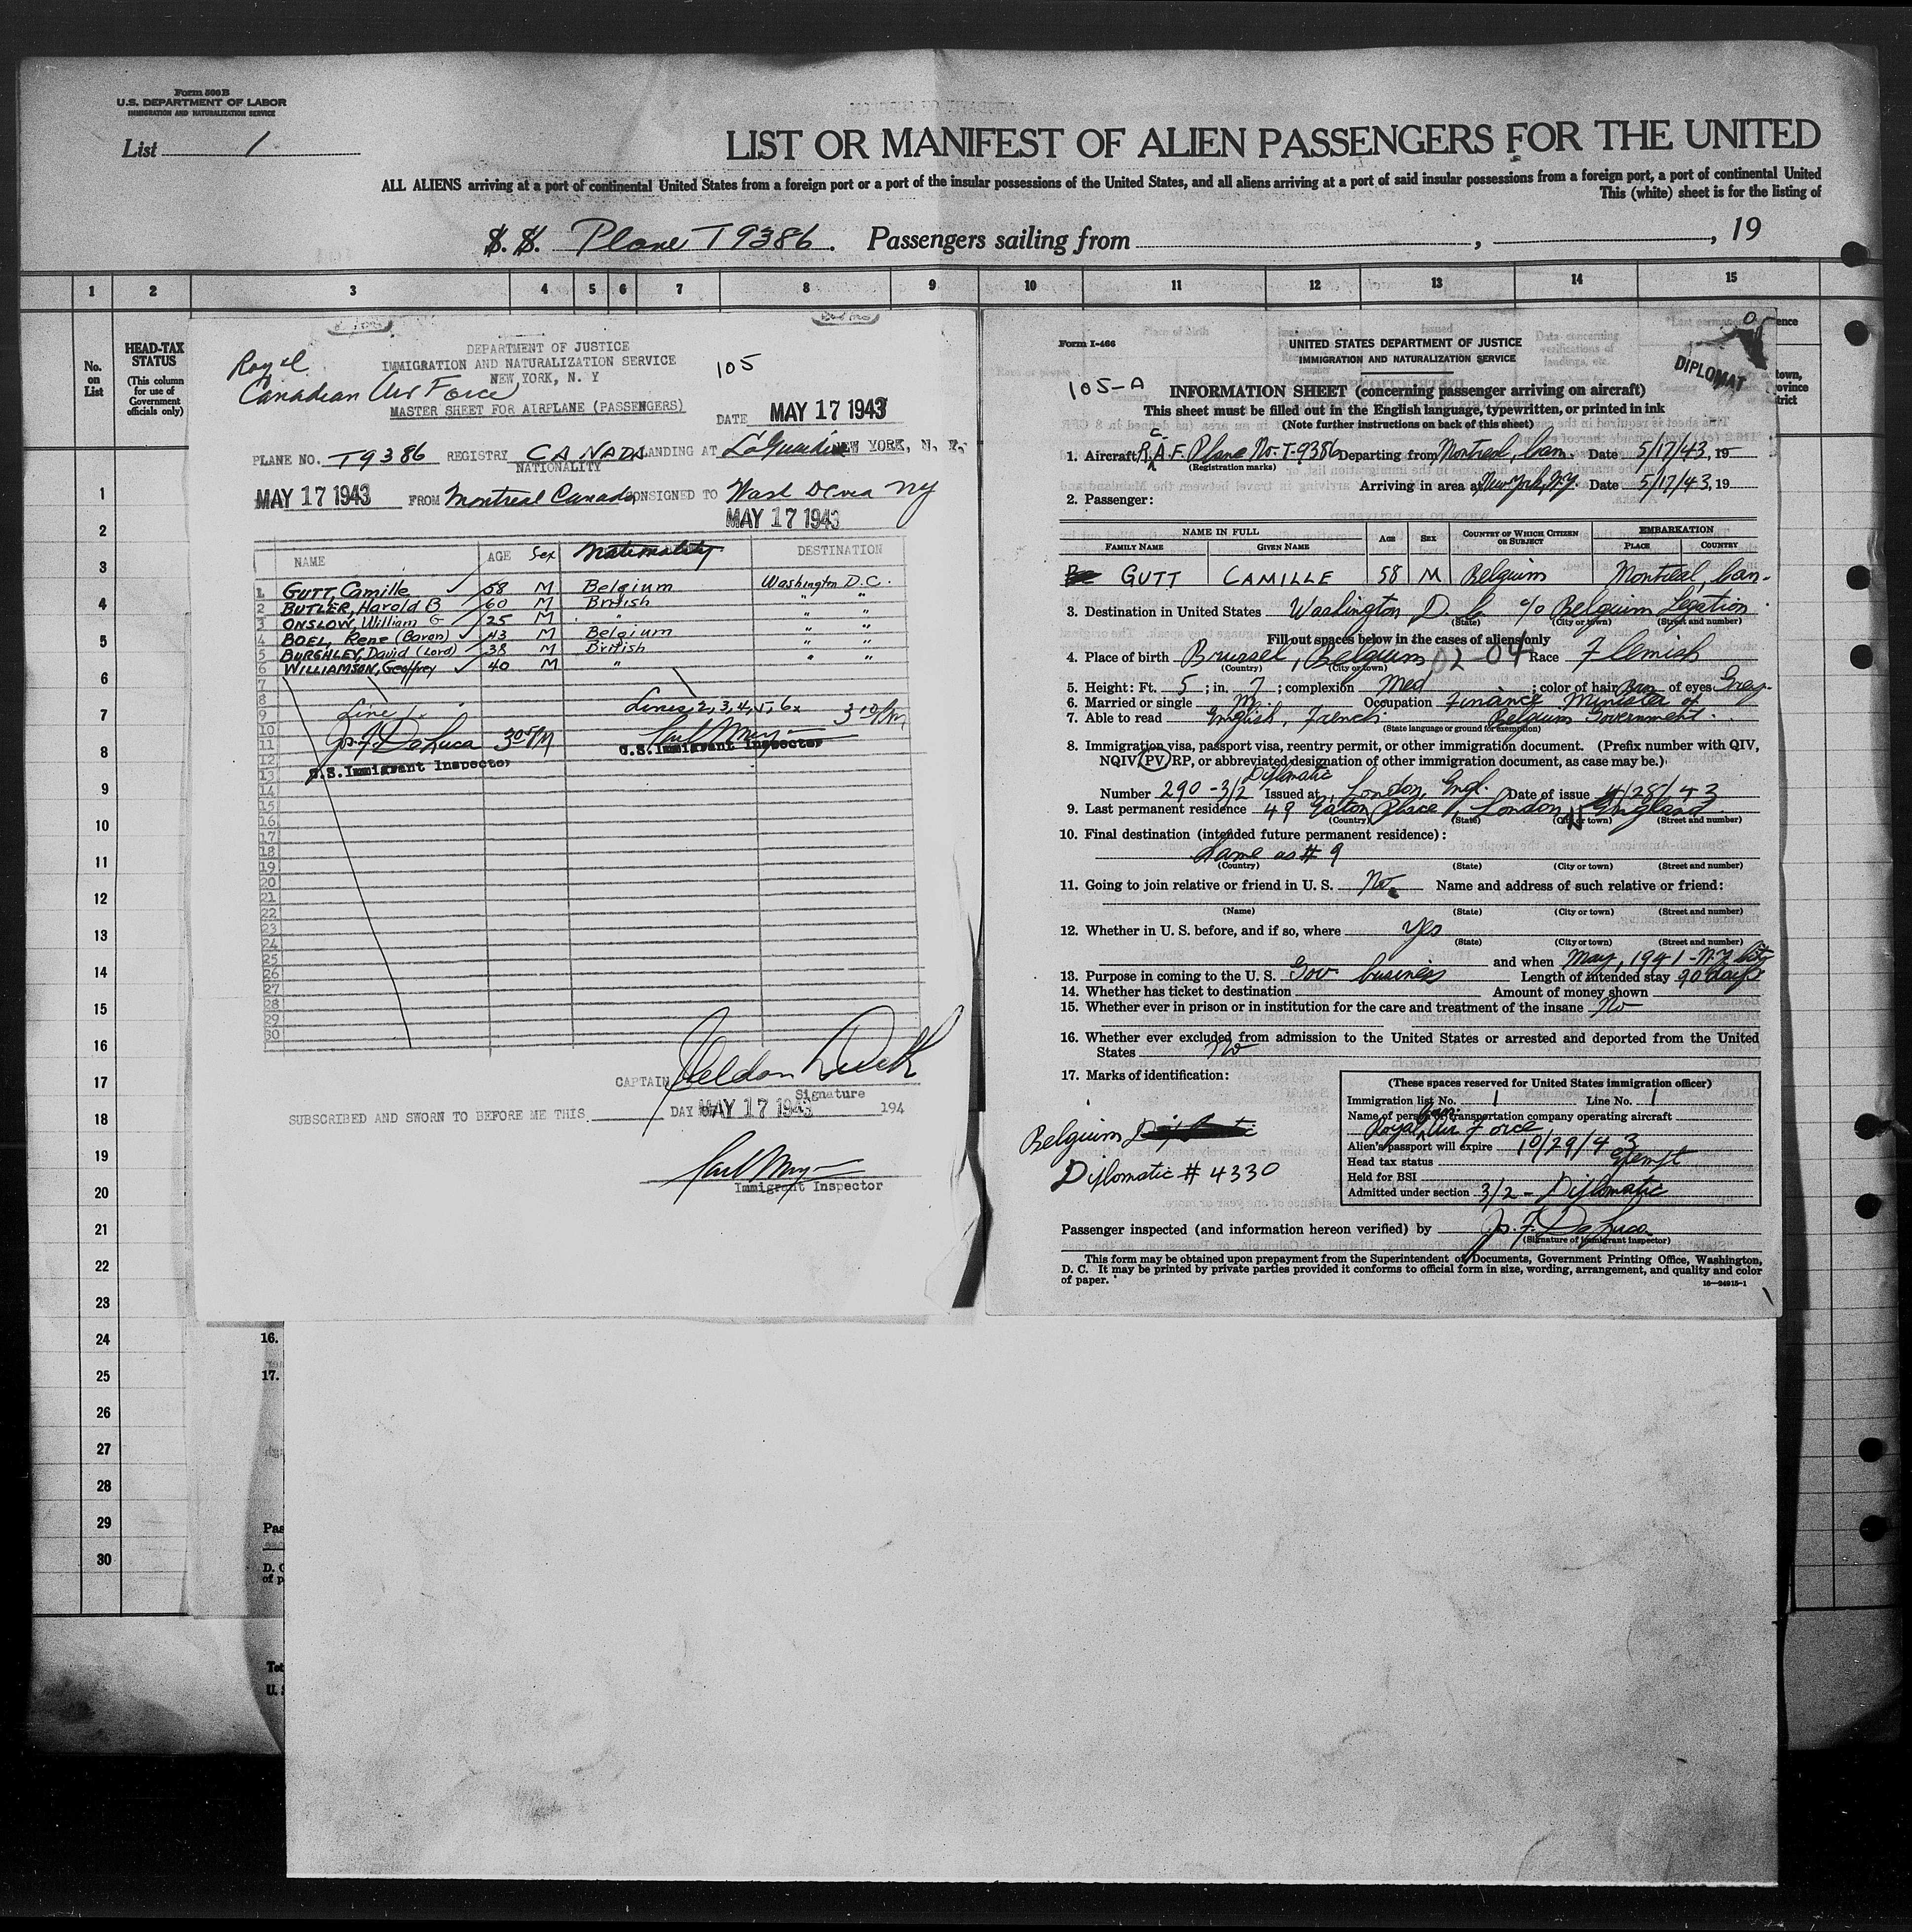 Form 500B
U.S. DEPARTMENT OF LABOR
IMMIGRATION AND NATURALIZATION SERVICE
List 1
LIST OR MANIFEST OF ALIEN PASSENGERS FOR THE UNITED
ALL ALIENS arriving at a port of continental United States from a foreign port or a port of the insular possessions of the United States, and all aliens arriving at a port of said insular possessions from a foreign port, a port of continental United
This (white) sheet is for the listing of
S. S. Plane T9386. Passengers sailing from , , 19
1 2 3 4 5 6 7 8 9 10 11 12 13 14 15
No. on List
HEAD-TAX STATUS
(This column for use of Government officials only)
1
2
3
4
5
6
7
8
9
10
11
12
13
14
15
16
17
18
19
20
21
22
23
24
25
26
27
28
29
30
Royal
Canadian Air Force
DEPARTMENT OF JUSTICE
IMMIGRATION AND NATURALIZATION SERVICE
NEW YORK, N. Y
105
MASTER SHEET FOR AIRPLANE (PASSENGERS)
DATE MAY 17 1943
PLANE NO. T9386 REGISTRY CANADA LANDING AT LaGuardia NEW YORK, N. Y.
NATIONALITY
MAY 17 1943 FROM Montreal Canada CONSIGNED TO Wash DC via NY
MAY 17 1943
NAME AGE Sex Nationality DESTINATION
1 GUTT, Camille 58 M Belgium Washington D.C.
2 BUTLER, Harold B 60 M British " "
3 ONSLOW, William G 25 M " " "
4 BOEL, Rene (Baron) 43 M Belgium " "
5 BURGHLEY, David (Lord) 38 M British " "
6 WILLIAMSON, Geoffrey 40 M " " "
7
8
9
10
11
12
13
14
15
16
17
18
19
20
21
22
23
24
25
26
27
28
29
30
Line 1.
Lines, 2, 3, 4, 5, 6x 3 10 PM
Jos. F. DaLuca 3 05 PM
U.S. Immigrant Inspector
U.S. Immigrant Inspector
CAPTAIN
Signature
SUBSCRIBED AND SWORN TO BEFORE ME THIS DAY OF MAY 17 1943 194
Immigrant Inspector
Form I-466
UNITED STATES DEPARTMENT OF JUSTICE
IMMIGRATION AND NATURALIZATION SERVICE
DIPLOMAT
105-A
INFORMATION SHEET (concerning passenger arriving on aircraft)
This sheet must be filled out in the English language, typewritten, or printed in ink
(Note further instructions on back of this sheet)
1. Aircraft R.C.A.F. Plane No-T-9386 Departing from Montreal, Can. Date 5/17/43, 19
(Registration marks)
Arriving in area at New York, N.Y. Date 5/17/43, 19
2. Passenger:
NAME IN FULL AGE SEX COUNTRY OF WHICH CITIZEN OR SUBJECT EMBARKATION
FAMILY NAME GIVEN NAME PLACE COUNTRY
GUTT CAMILLE 58 M Belgium Montreal, Can.
3. Destination in United States Washington D. C. c/o Belgium Legation
(State) (City or town) (Street and number)
Fill out spaces below in the cases of aliens only
4. Place of birth Brussel, Belgium 02-04 Race Flemish
(Country) (City or town)
5. Height: Ft. 5; in. 7; complexion Med; color of hair Brn of eyes Gray.
6. Married or single M. Occupation Finance Minister of
7. Able to read English, French. Belgium Government.
(State language or ground for exemption)
8. Immigration visa, passport visa, reentry permit, or other immigration document. (Prefix number with QIV,
NQIV, PV, RP, or abbreviated designation of other immigration document, as case may be.)
Diplomatic
Number 290-3/2 Issued at London, Engl. Date of issue 4/28/43
9. Last permanent residence 49 Eaton Place, London, England
(Country) (State) (City or town) (Street and number)
10. Final destination (intended future permanent residence):
Same as # 9
(Country) (State) (City or town) (Street and number)
11. Going to join relative or friend in U. S. No. Name and address of such relative or friend:
(Name) (State) (City or town) (Street and number)
12. Whether in U. S. before, and if so, where Yes
(State) (City or town) (Street and number)
and when May, 1941 - N.Y. City
13. Purpose in coming to the U. S. Gov business Length of intended stay 90 days
14. Whether has ticket to destination Amount of money shown
15. Whether ever in prison or in institution for the care and treatment of the insane No
16. Whether ever excluded from admission to the United States or arrested and deported from the United
States No
17. Marks of identification:
Belgium
Diplomatic # 4330
(These spaces reserved for United States immigration officer)
Immigration list No. 1 Line No. 1
Name of person or transportation company operating aircraft
Royal Can. Air Force
Alien's passport will expire 10/29/43
Head tax status exempt
Held for BSI
Admitted under section 3/2 - Diplomatic
Passenger inspected (and information hereon verified) by Jos. F. DaLuca
(Signature of immigrant inspector)
This form may be obtained upon prepayment from the Superintendent of Documents, Government Printing Office, Washington,
D. C. It may be printed by private parties provided it conforms to official form in size, wording, arrangement, and quality and color
of paper.
16—24915-1
16.
17.